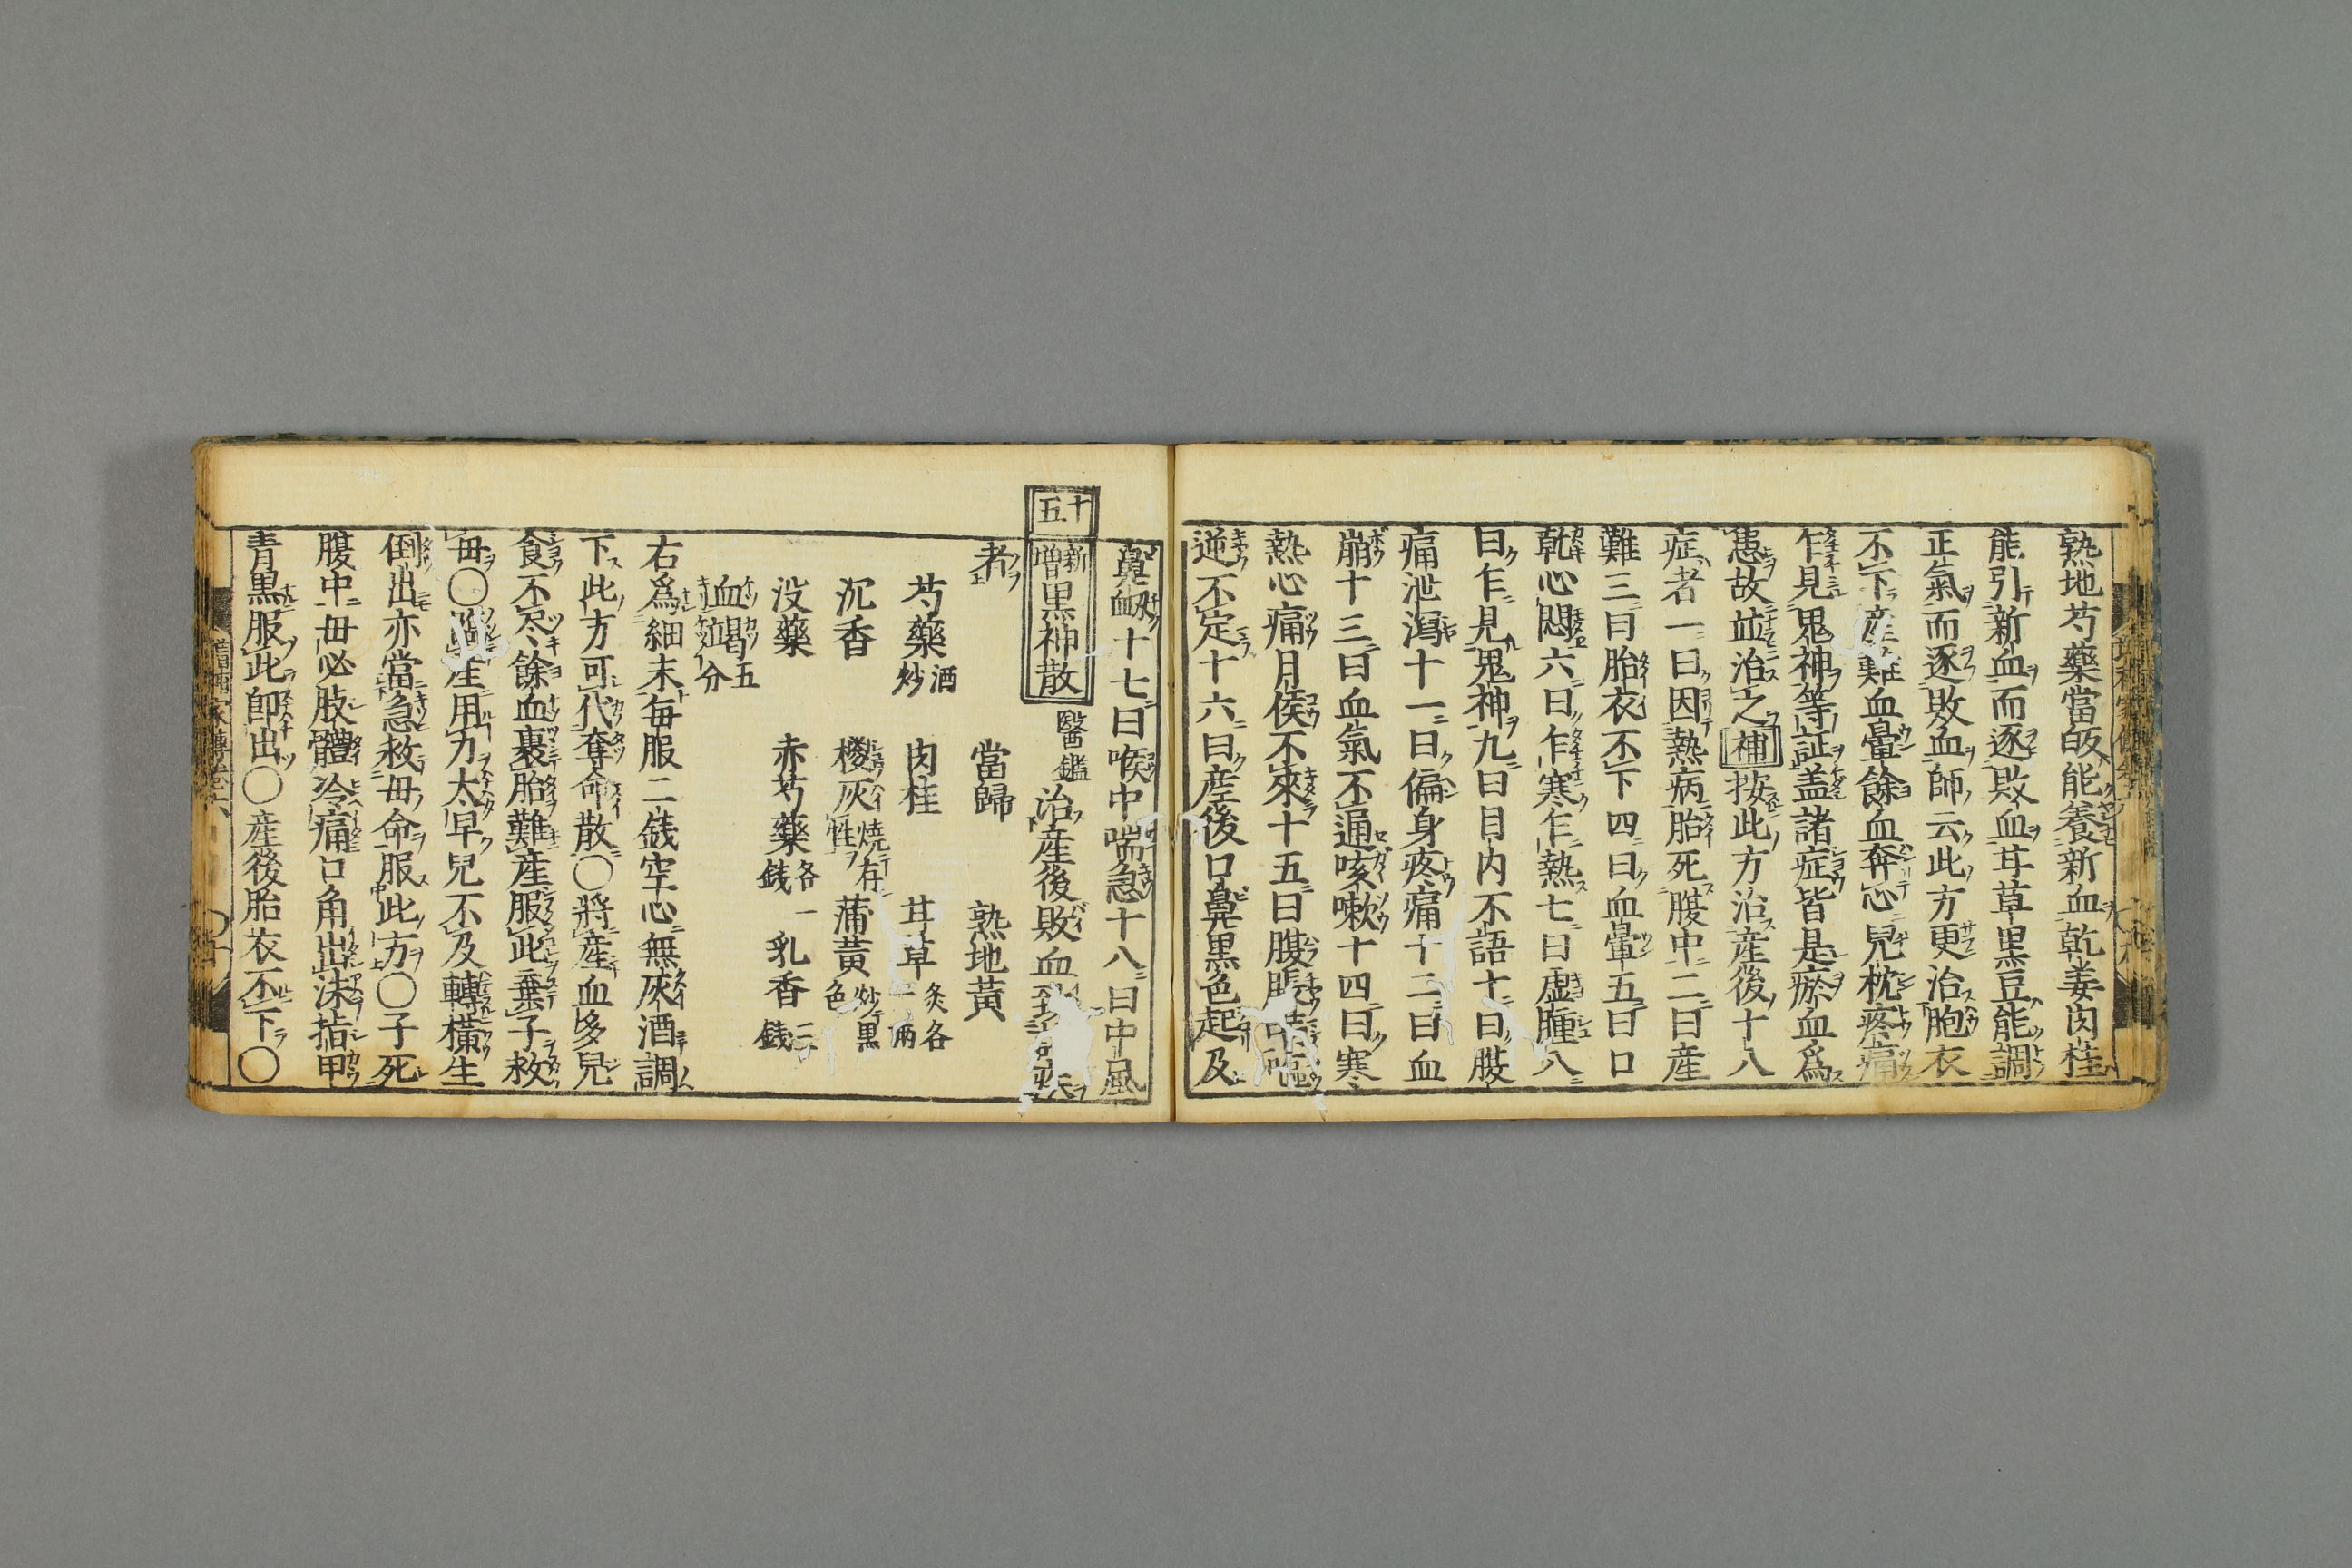 熟地芍藥當皈能養新血乾姜肉桂
能引新血而逐敗血甘草黒豆能調
正氣而逐敗血師云此方更治胞衣
不下産難血暈餘血奔心兒枕疼痛
乍見鬼神等証盖諸症皆是瘀血爲
患故並治之補按此方治産後十八
症者一曰因熱病胎死腹中二曰産
難三曰胎衣不下四曰血暈五曰口
乾心悶六曰乍寒乍熱七曰虚腫八
曰乍見鬼神九曰月内不語十曰腹
痛泄瀉十一曰偏身疼痛十二曰血
崩十三曰血氣不通咳嗽十四曰寒
熱心痛月侯不來十五曰腹脹
逆不定十六曰産後口鼻黒色起及
鼻衂十七曰喉中喘急十八曰中風
十五
新増黒神散 醫鑑 治産後敗血
者 當歸 熟地黄
芍藥酒炒 肉桂 甘草炙各一兩
沉香 椶灰燒存性 蒲黄炒黒色
没藥 赤芍藥各一錢 乳香三錢
血竭五分
右爲細末毎服二錢空心無灰酒調
下此方可代奪命散〇將産血多兒
食不尽餘血裹胎難産服此棄子救
毋〇産用力太早兒不及轉橫生
倒出亦當急救毋命服此方〇子死
腹中毋必肢體冷痛口角出沫指甲
青黒服此即出〇産後胎衣不下〇